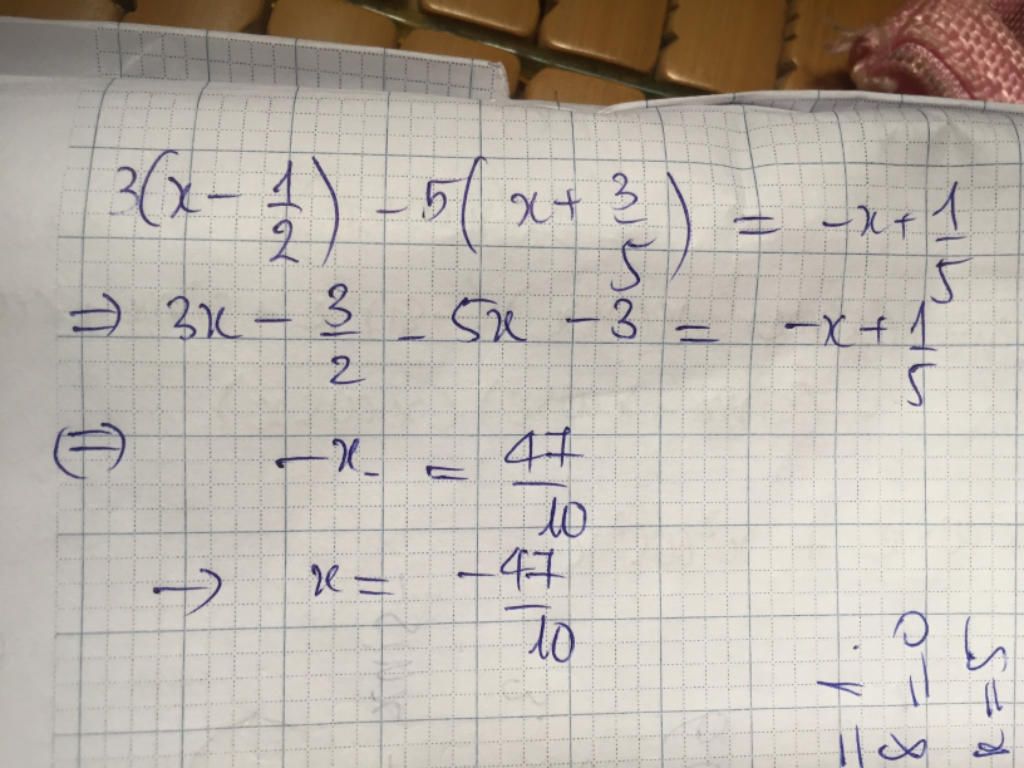 3(x - 1/2) - 5(x + 3/5) = -x + 1/5
⇒ 3x - 3/2 - 5x - 3 = -x + 1/5
(⇒) -x = 47/10
→ x = -47/10